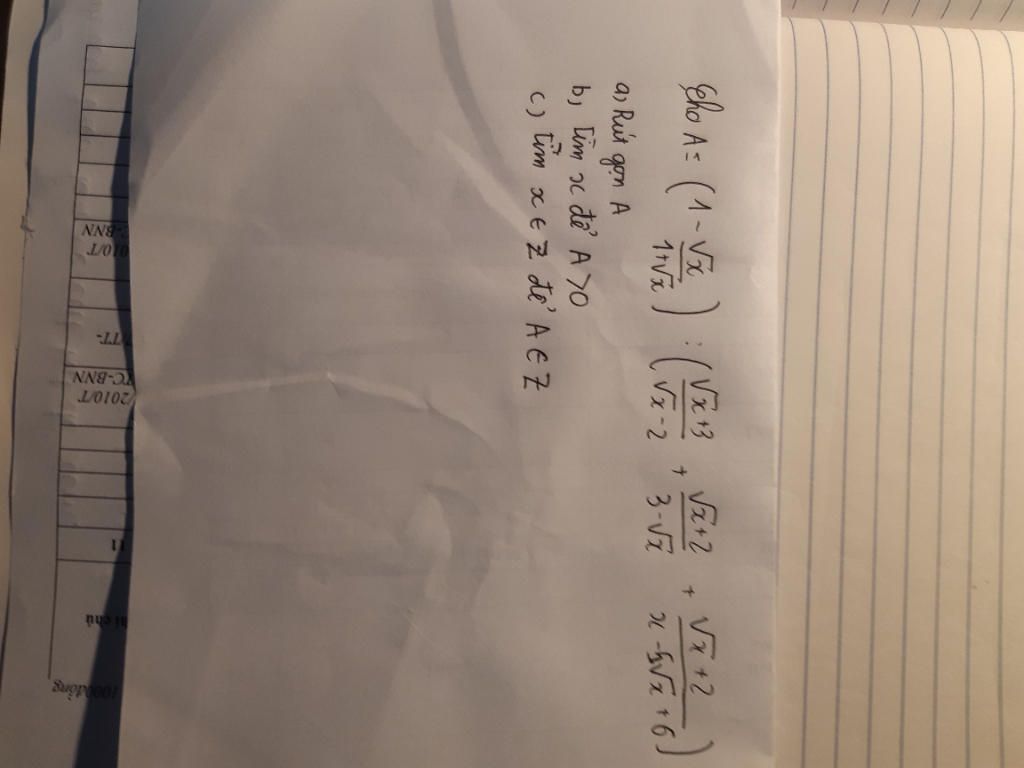 Cho A = ( 1 - √x / 1+√x ) : ( √x+3 / √x-2 + √x+2 / 3-√x + √x+2 / x-5√x+6 )
a, Rút gọn A
b, Tìm x để A > 0
c, Tìm x ∈ Z để A ∈ Z
C-BNN
010/T
/TT-
TC-BNN
/2010/T
11
hi chú
1000đồng